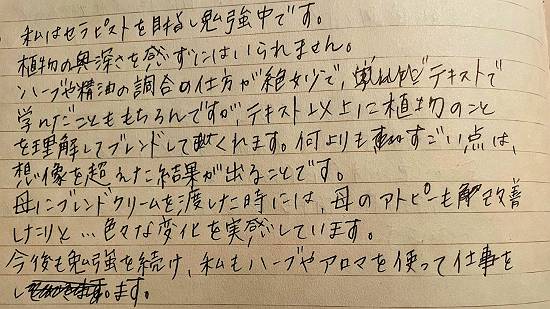 私はセラピストを目指し勉強中です。
植物の奥深さを感ずにはいられません。
ハーブや精油の調合の仕方が絶妙で、テキストで
学んだことももちろんですが、テキスト以上に植物のこと
を理解してブレンドしてくれます。何よりもすごい点は、
想像を超えた結果が出ることです。
母にブレンドクリームを渡した時には、母のアトピーも改善
したりと…色々な変化を実感しています。
今後も勉強を続け、私もハーブやアロマを使って仕事を
します。